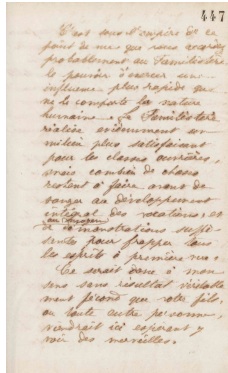 447
C'est sous l'empire de ce
point de vue que vous accordez
probablement au Familistère
le pouvoir d'exercer une
influence plus rapide que
ne le comporte la nature
humaine. Le Familistère
réalise évidemment un
milieu plus satisfaisant
pour les classes ouvrières,
mais combien de choses
restent à faire avant de
songer au développement
intégral des vocations, et
au moyen
de démonstrations suffi
santes pour frapper tous
les esprits à première vue.
Ce serait donc à mon
sens sans résultat véritable
ment fécond que votre fils,
ou toute autre personne,
viendrait ici espérant y
voir des merveilles.